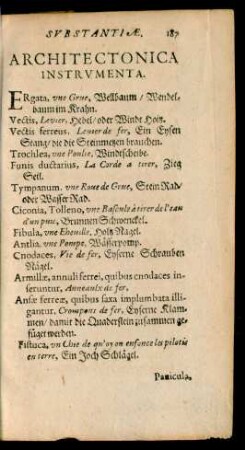 SVBSTANTIÆ. 187
ARCHITECTONICA
INSTRVMENTA.
ERgata, vne Grue, Wellbaum / Wendel-
baum im Krahn.
Vectis, Levier, Hebel / oder Winde Holtz.
Vectis ferreus. Levier de fer, Ein Eysen
Stang / die die Steinmetzen brauchen.
Trochlea, vne Poulie, Windscheibe.
Funis ductarius, La Corde a tirer, Zieg
Seil.
Tympanum. vne Roue de Grue, Stein Rad /
oder Wasser Rad.
Ciconia, Tolleno, vne Bascule à tirer de l'eau
d'un puis, Brunnen Schwenckel.
Fibula, vne Cheuille, Holtz Nagel.
Antlia. vne Pompe, Wasserpomp.
Cnodaces, Vis de fer, Eyserne Schrauben
Nägel.
Armillæ, annuli ferrei, quibus cnodaces in-
seruntur, Anneaulx de fer.
Ansæ ferreæ, quibus saxa implumbata illi-
gantur. Crampons de fer, Eyserne Klam-
men / damit die Quaderstein zusammen ge-
füget werden.
Fistuca, vn Que de qu'oy on enfonce les pilotis
en terre, Ein Joch Schlägel.
Panicula,